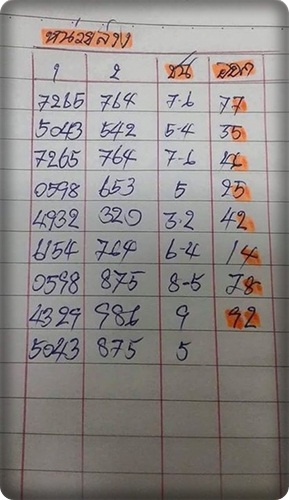 หน่วยล่าง
1 2 ชน ออก
7265 764 7-6 77
5043 542 5-4 35
7265 764 7-6 46
0598 653 5 25
4932 320 3-2 42
6154 764 6-4 14
0598 875 8-5 78
4329 986 9 92
5043 875 5